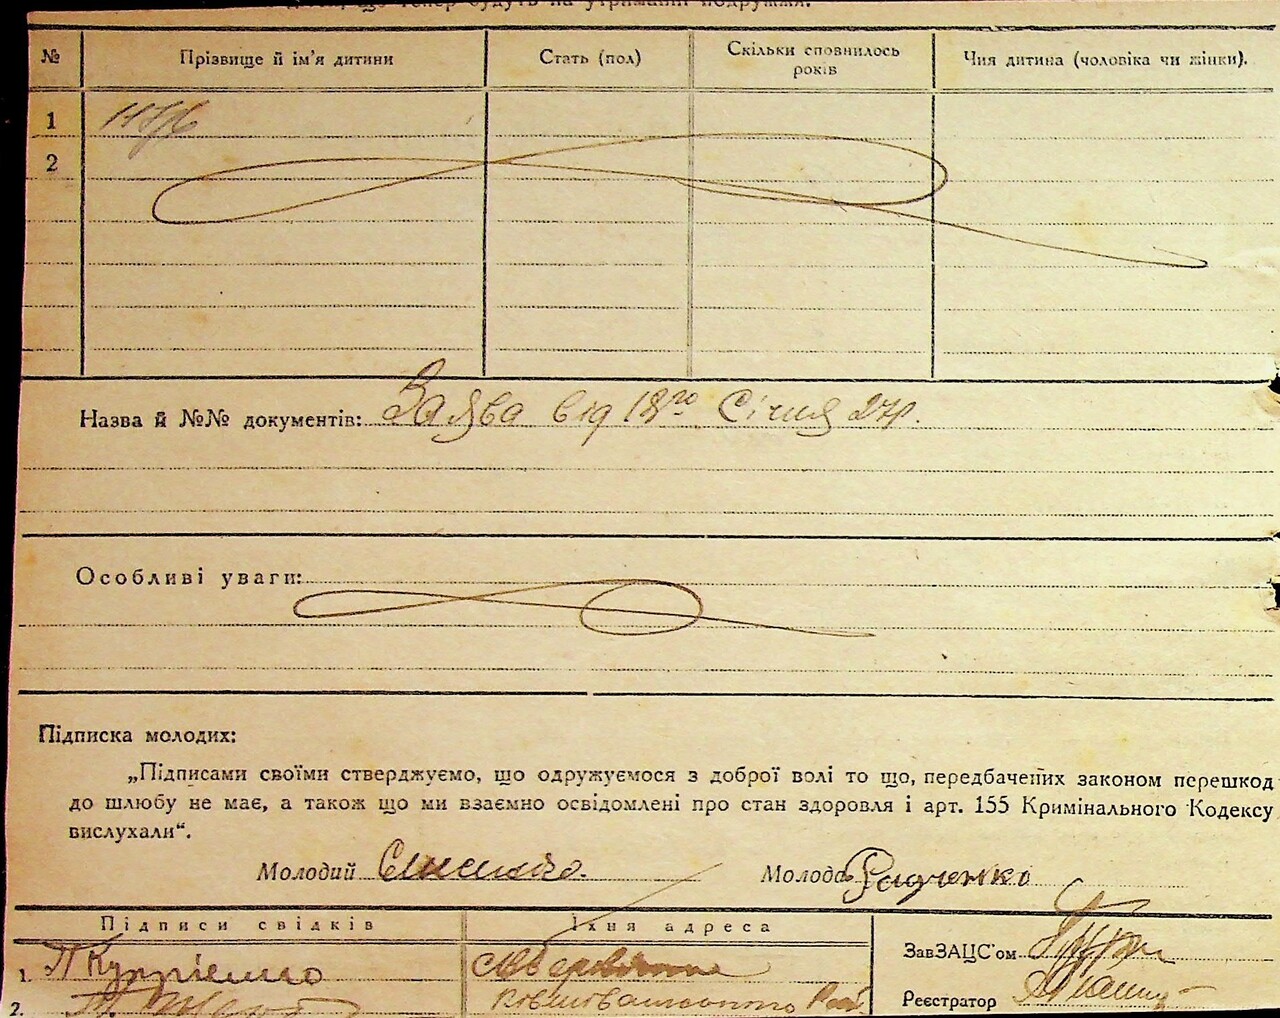 дітей, що тепер будуть на утриманні подружжя.
№ Прізвище й ім'я дитини Стать (пол) Скільки сповнилось років Чия дитина (чоловіка чи жінки).
1
2
Назва й №№ документів: Заява від 18го Січня 27р.
Особливі уваги:
Підписка молодих:
„Підписами своїми стверджуємо, що одружуємося з доброї волі то що, передбачених законом перешкод
до шлюбу не має, а також що ми взаємно освідомлені про стан здоровля і арт. 155 Кримінального Кодексу
вислухали“.
Молодий Молода Радченко
Підписи свідків Їхня адреса
ЗавЗАЦС'ом
1. П Купріенко
Реєстратор
2.